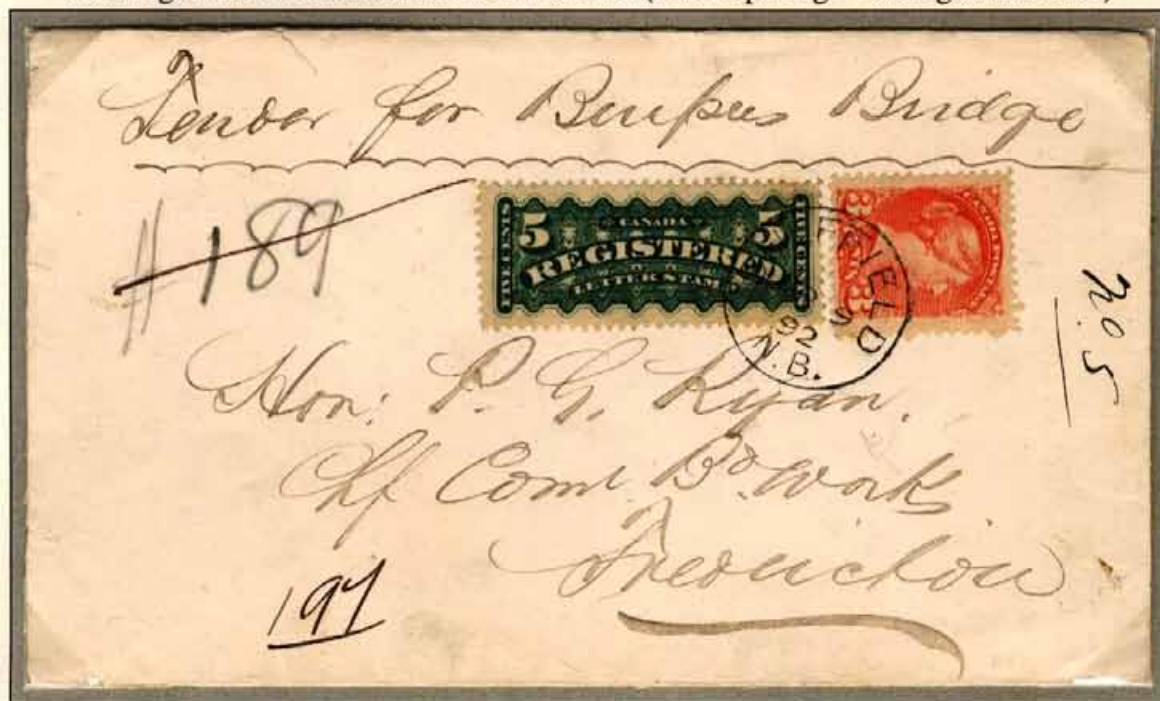 Tender for Bumpus Bridge
# 189
5 CANADA 5
REGISTERED
LETTER STAMP
FIVE CENTS
FIVE CENTS
3 3
FIELD
9
92
N.B.
No 5
Hon: P. G. Ryan.
Chf Comr. Bd. Works
Fredericton
197